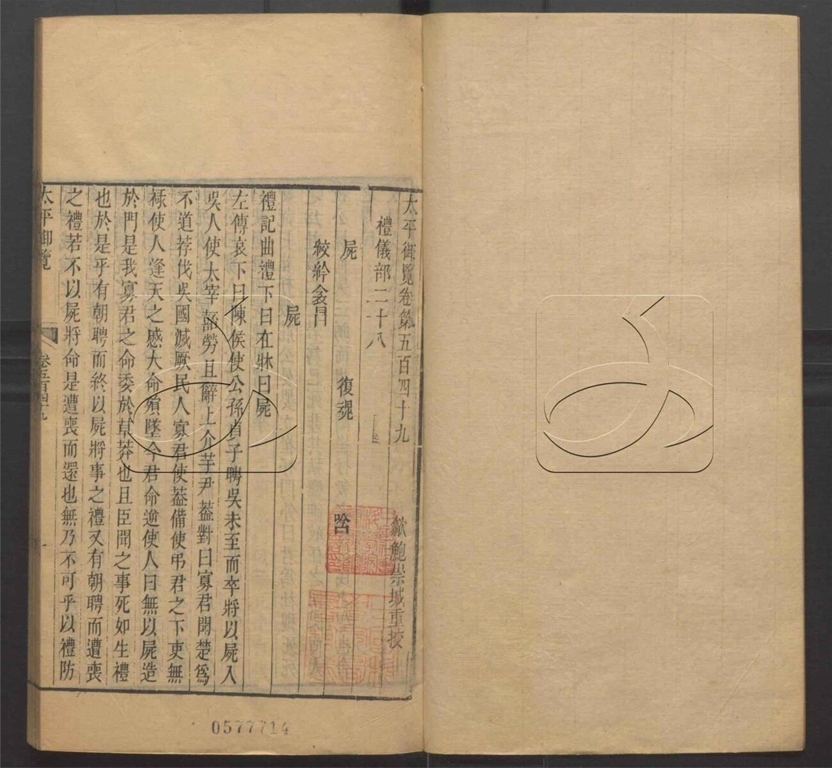 太平御覽卷第五百四十九
歙鮑崇城重校
禮儀部二十八
屍 復魂 唅
絞紟衾冒
屍
禮記曲禮下曰在牀曰屍
左傳哀下曰陳侯使公孫貞子聘吳未至而卒將以屍入
吳人使太宰嚭勞且辭上介芋尹葢對曰寡君聞楚爲
不道荐伐吳國滅厥民人寡君使葢備使弔君之下吏無
祿使人逢天之慼大命隕墜今君命逆使人曰無以屍造
於門是我寡君之命委於草莽也且臣聞之事死如生禮
也於是乎有朝聘而終以屍將事之禮又有朝聘而遭喪
之禮若不以屍將命是遭喪而還也無乃不可乎以禮防
太平御覽 卷五百四十九 一
0577714